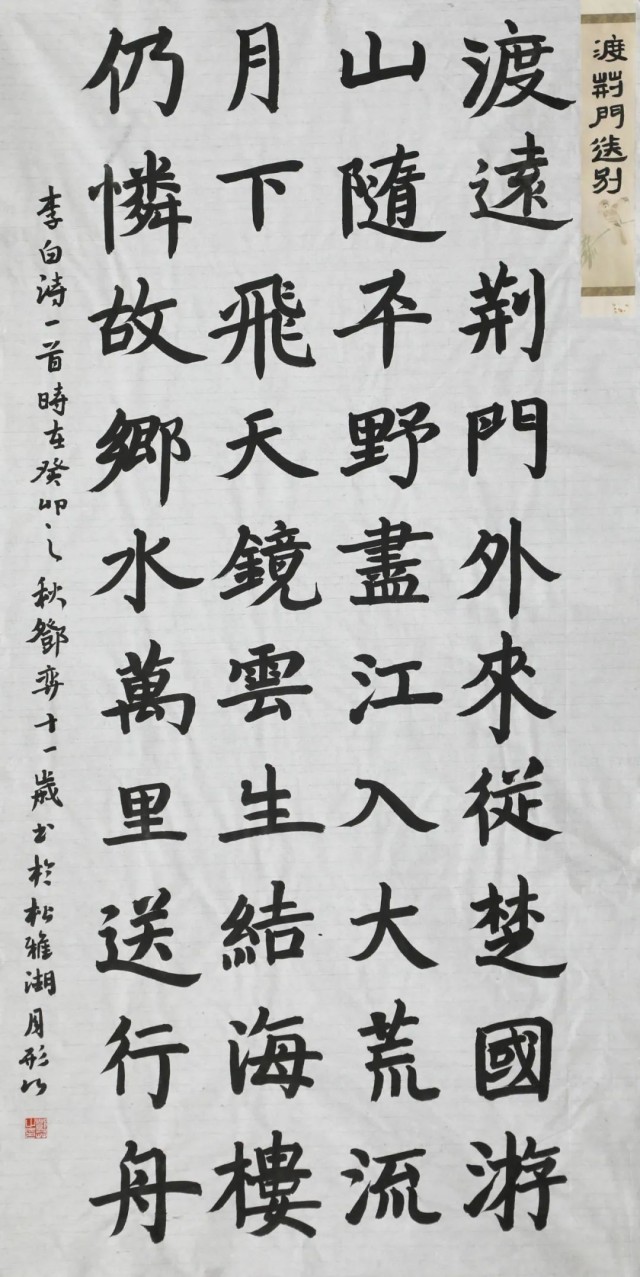 渡荆門送别
渡遠荆門外來從楚國游
山隨平野盡江入大荒流
月下飛天鏡雲生結海樓
仍憐故鄉水萬里送行舟
李白詩一首時在癸卯之秋鄧弈十一歲書於松雅湖月形